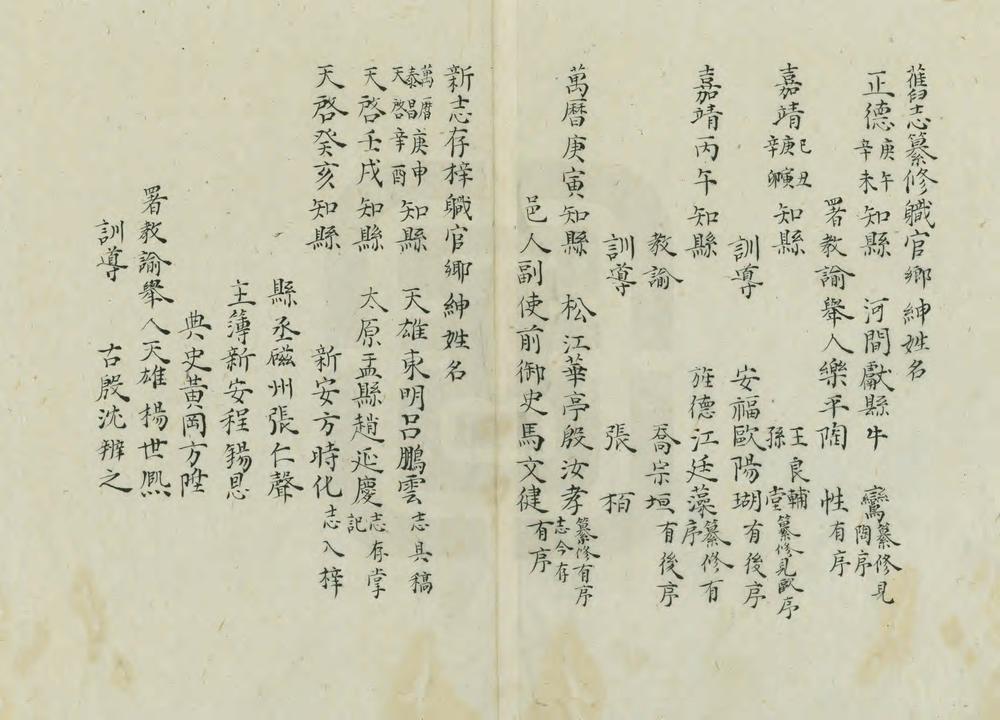 舊志纂修職官鄉紳姓名
正德庚午辛未知縣 河間獻縣牛 鸞纂修見陶序
署教諭舉人樂平陶 性有序
嘉靖己丑庚寅辛卯知縣 王良輔 孫 堂纂修見歐序
訓導 安福歐陽瑚有後序
嘉靖丙午知縣 旌德江廷藻纂修有序
教諭 喬宗垣有後序
訓導 張 栢
萬曆庚寅知縣 松江華亭殷汝孝纂修有序志今存
邑人副使前御史馬文健有序
新志存梓職官鄉紳姓名
萬曆泰昌天啓庚申辛酉知縣 天雄東明呂鵬雲志具稿
天啓壬戌知縣 太原盂縣趙延慶志存掌記
天啓癸亥知縣 新安方時化志入梓
縣丞磁州張仁聲
主簿新安程錫恩
典史黃岡方陞
署教諭舉人天雄楊世熈
訓導 古殷沈辨之